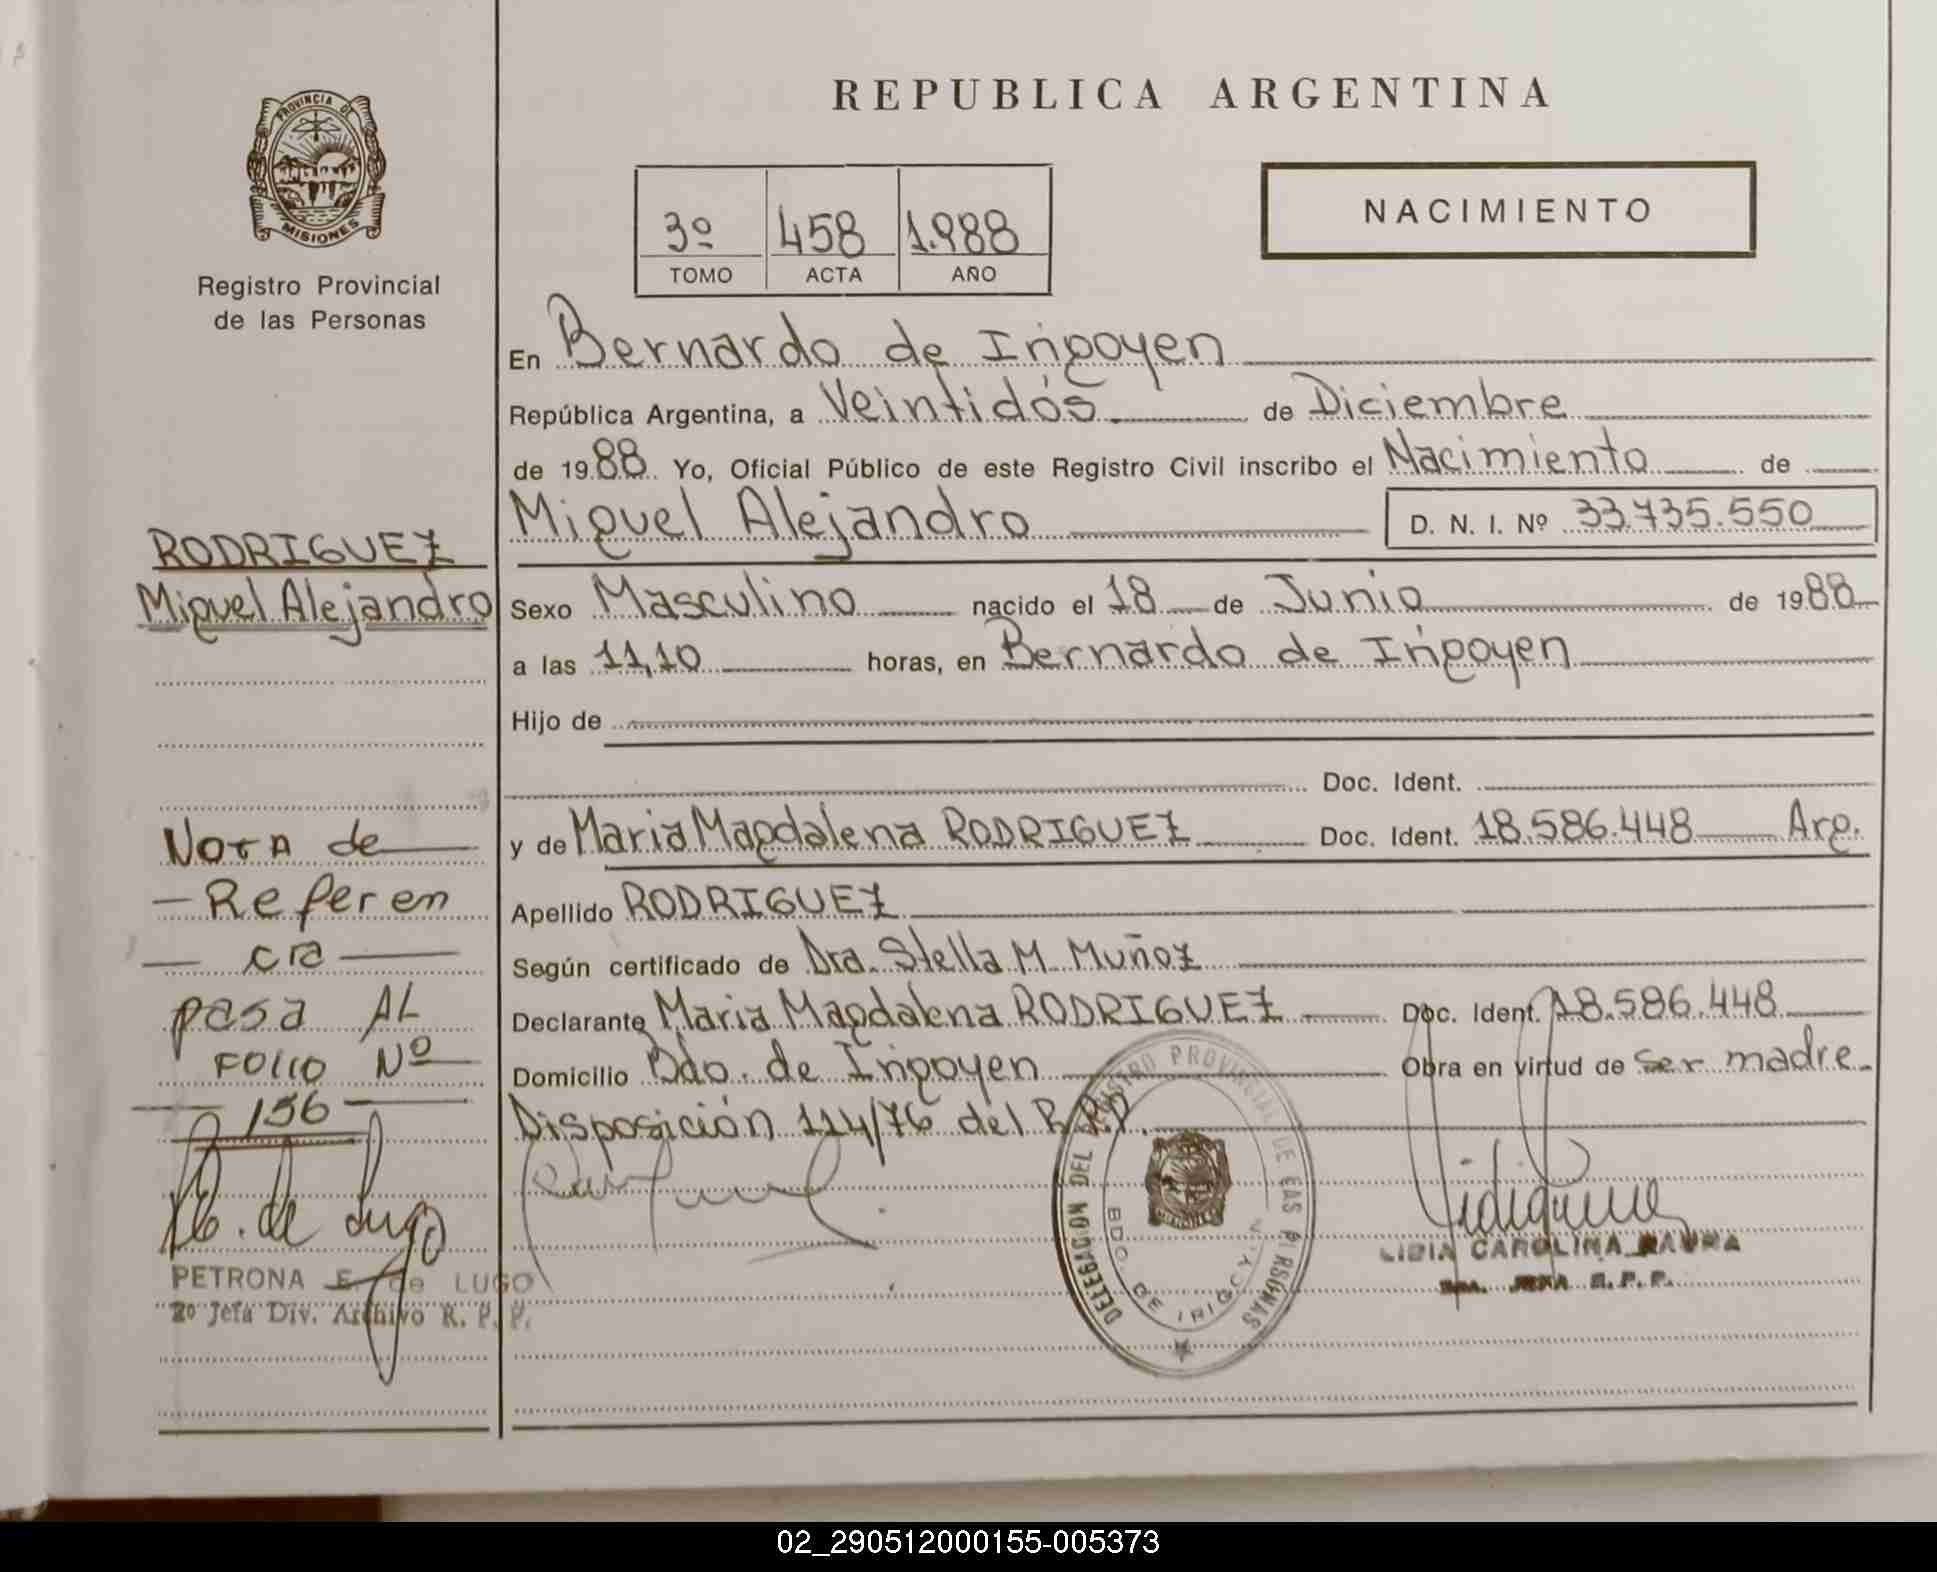 PROVINCIA DE
MISIONES
Registro Provincial
de las Personas
RODRIGUEZ
Miguel Alejandro
NOTA de
- Referen
- cia
pasa AL
FOLIO Nº
156
PETRONA E. de LUGO
2º Jefa Div. Archivo R. P. P.
REPUBLICA ARGENTINA
3º 458 1.988
TOMO ACTA AÑO
NACIMIENTO
En Bernardo de Irigoyen
República Argentina, a Veintidós de Diciembre
de 1988 Yo, Oficial Público de este Registro Civil inscribo el Nacimiento de
Miguel Alejandro D. N. I. Nº 33.735.550
Sexo Masculino nacido el 18 de Junio de 1988
a las 11,10 horas, en Bernardo de Irigoyen
Hijo de
Doc. Ident.
y de Maria Magdalena RODRIGUEZ Doc. Ident. 18.586.448 Arg.
Apellido RODRIGUEZ
Según certificado de Dra. Stella M. Muñoz
Declarante Maria Magdalena RODRIGUEZ Doc. Ident. 18.586.448
Domicilio Bdo. de Irigoyen Obra en virtud de ser madre
Disposición 114/76 del R.P.P.
DELEGACION DEL REGISTRO PROVINCIAL DE LAS PERSONAS
BDO. DE IRIGOYEN
LIDIA CAROLINA
R. P. P.
02_290512000155-005373